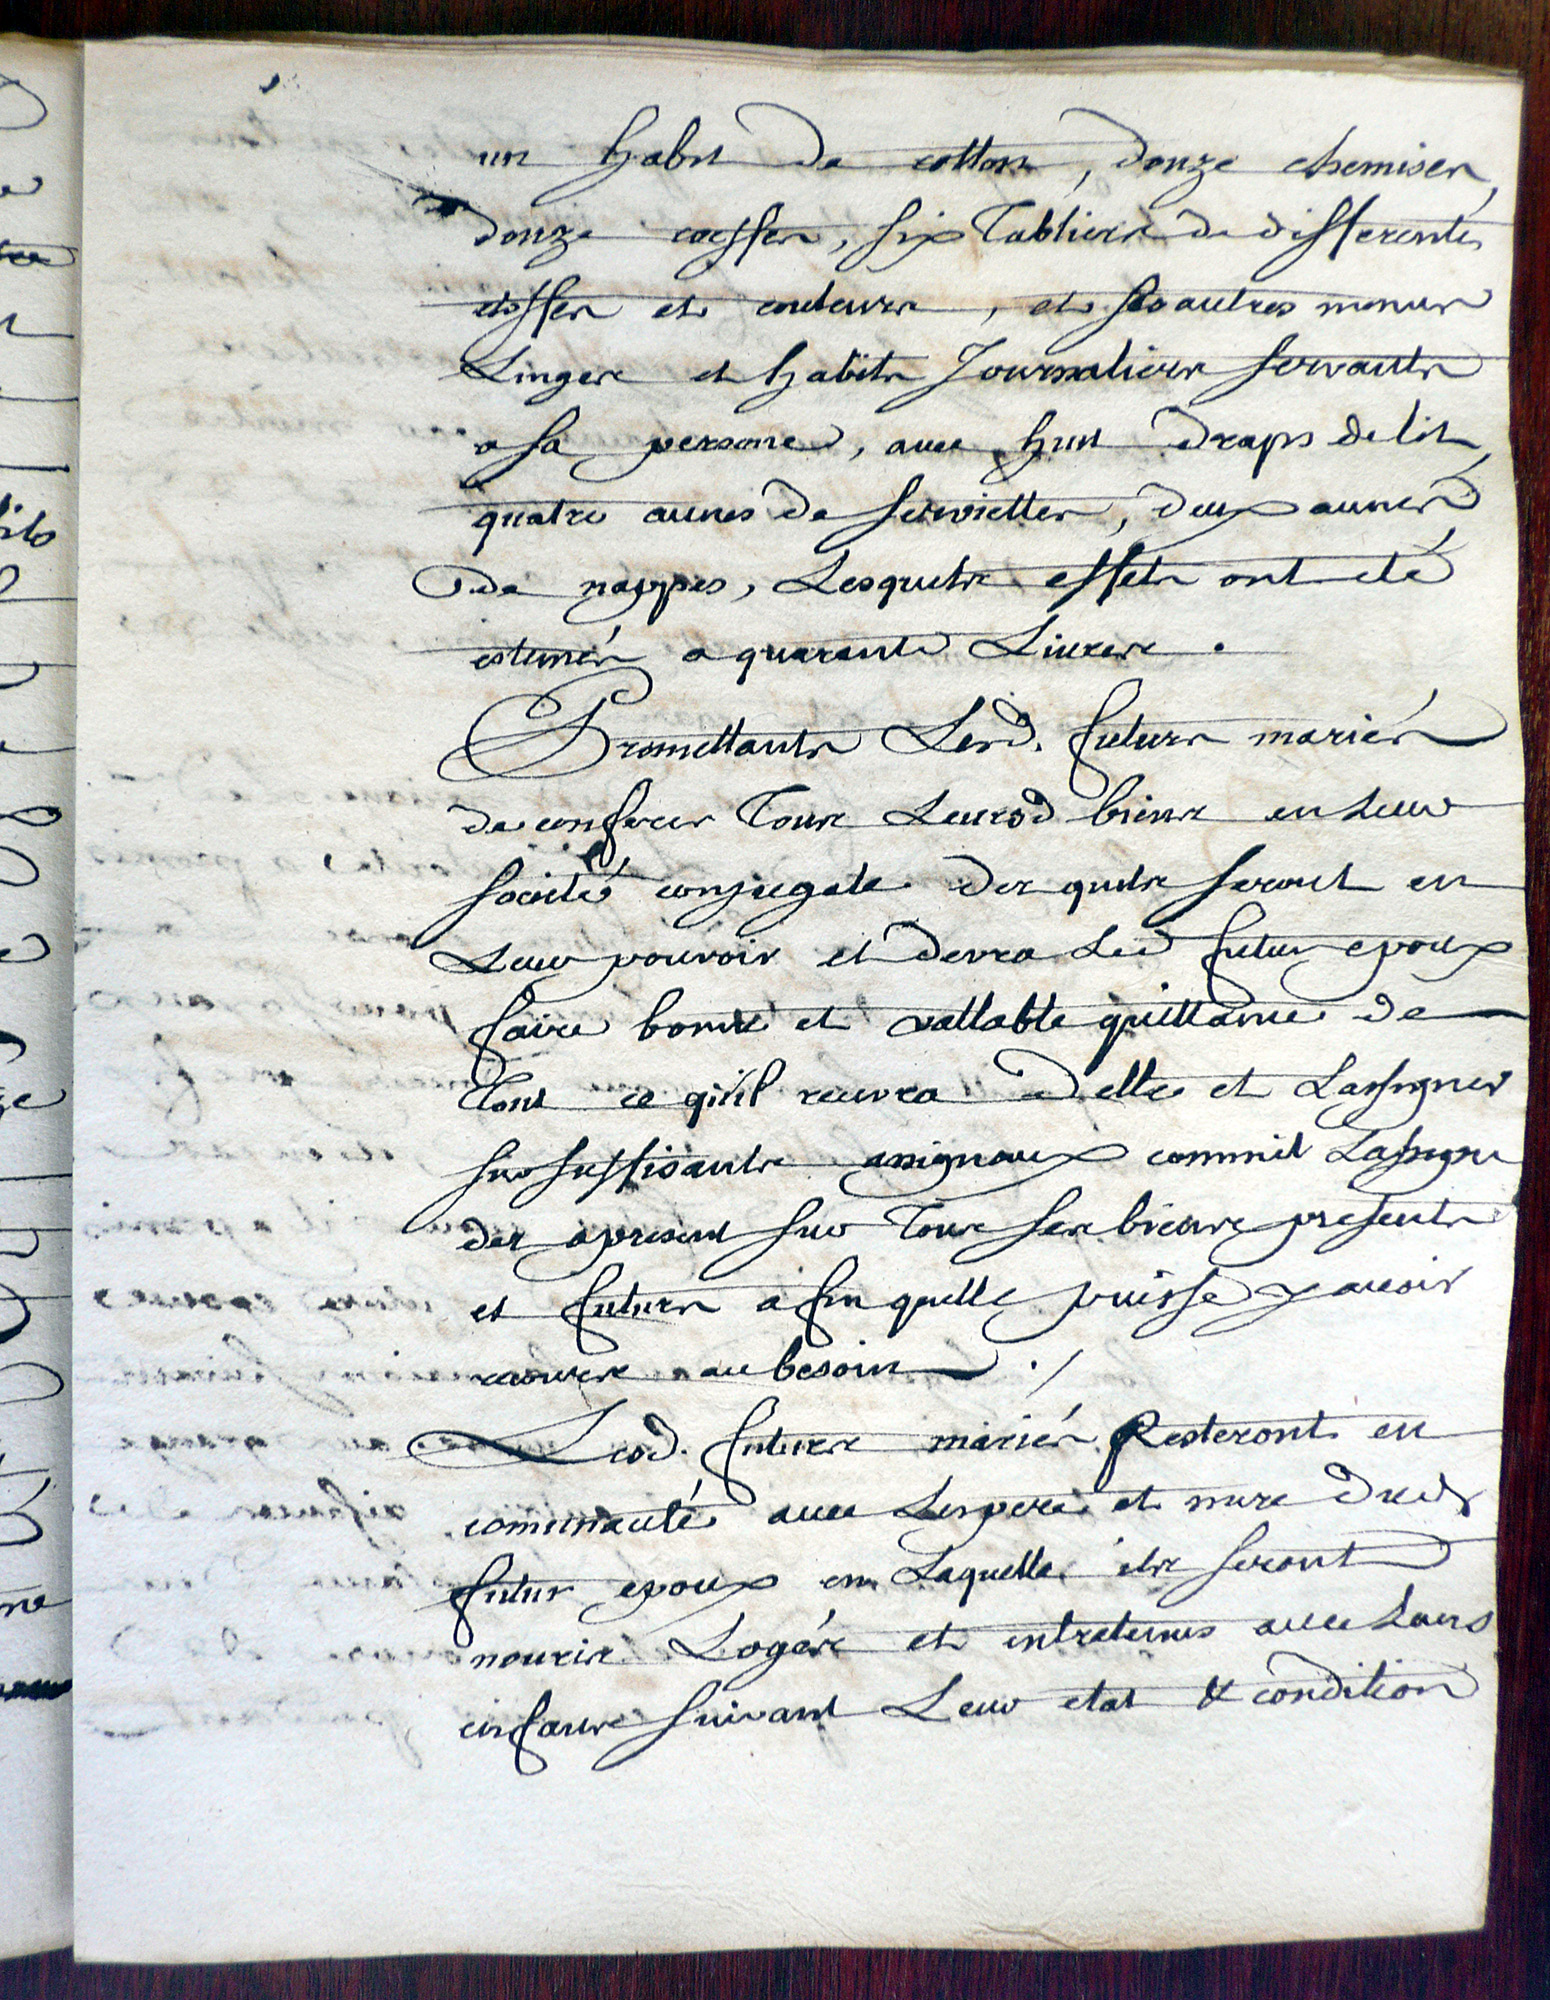 un habit de cotton, douze chemises,
douze coeffes, six Tabliers de differentes
etoffes et couleurs, et ses autres menus
Linges et habits Journaliers servants
a sa persone, avec huit draps de lit,
quatre aunes de serviettes, deux aunes
de nappes, Lesquels effets ont eté
estimés a quarante Livres.
Promettants Lesd. futurs mariés
de conferer Tous Leursd biens en Leur
societé conjugale desquels seront en
Leur pouvoir et devra Led futur epoux
faire bonne et vallable quittance de
Tout ce qu'il recevra d'elle et Lassigner
sur suffisants assignaux comme il Lassigne
des apresent sur Tous ses biens presents
et futurs afin quelle puisse y avoir
recours au besoin ./
Lesd. futurs mariés Resteront en
comunauté avec Les pere et mere dud
futur epoux en Laquelle ils seront
nouris Logés et entretenus avec Leurs
enfans suivant Leur etat & condition